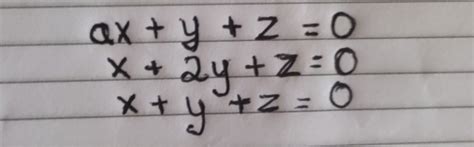 ax + y + z = 0
x + 2y + z = 0
x + y + z = 0